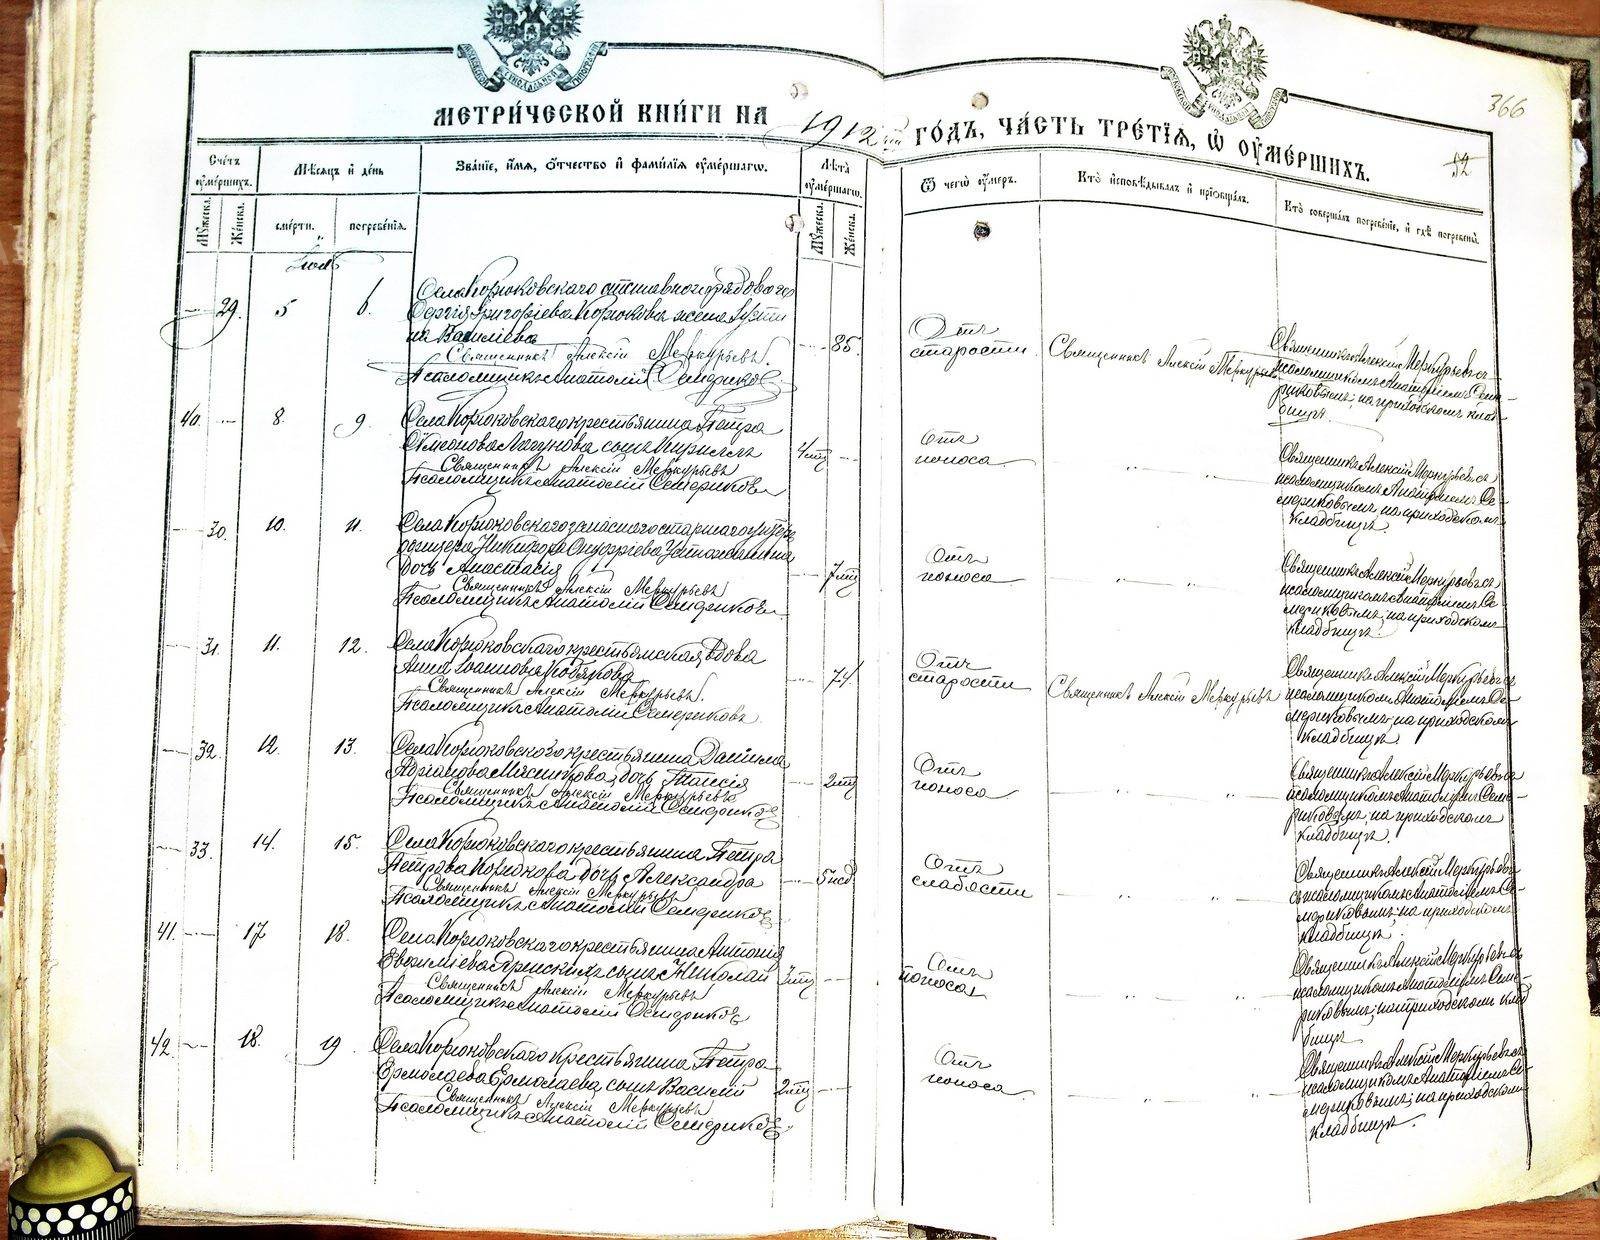 МЕТРИ́ЧЕСКОЙ КНИ́ГИ НА 1912 ГО́ДЪ, ЧА́СТЬ ТРЕ́ТІѦ, Ѿ ОУМЕ́РШИХЪ.
366
52
Сче́тъ оуме́ршихъ.
Мѣсяцъ и день
Зва́ніе, и́мя, о́тчество и фами́лія оуме́ршагѡ.
Лѣта оуме́ршагѡ.
Ѿ чегѡ̀ оу́меръ.
Кто̀ исповѣ́дывалъ и прїобща́лъ.
Кто̀ соверша́лъ погребе́ніе, и гдѣ̀ погребены̀.
Мужеска.
Женска.
сме́рти.
погребе́нія.
Мужеска.
Женска.
Іюль
29. 5 6.
Села Корюковского отставного рядового
Сергія Григоріева Корюкова жена Іусти
на Василіева
85.
Священникъ Алексій Меркурьевъ.
Псаломщикъ Анатолій Семериковъ
Отъ
старости.
Священникъ Алексій Меркурьевъ
Священникъ Алексій Меркурьевъ съ
псаломщикомъ Анатоліемъ Семе-
риковымъ; на приходскомъ клад
бищѣ.
40. 8. 9.
Села Корюковского крестьянина Петра
Сѵмеонова сынъ Кириллъ
4 мц
Священникъ Алексій Меркурьевъ
Псаломщикъ Анатолій Семериковъ
Отъ
поноса.
Священникъ Алексій Меркурьевъ съ
псаломщикомъ Анатоліемъ Се-
мериковымъ, на приходскомъ
кладбищѣ.
30. 10. 11.
Села Корюковского запасного старшого унтеръ
офицера Никифора Онуфріева
дочь Анастасія
7 мц
Священникъ Алексій Меркурьевъ
Псаломщикъ Анатолій Семериковъ
Отъ
поноса
Священникъ Алексій Меркурьевъ съ
псаломщикомъ Анатоліемъ Се-
мериковымъ; на приходскомъ
кладбищѣ.
31. 11. 12.
Села Корюковского крестьянская вдова
Анна Іоаннова Кобякова
74.
Священникъ Алексій Меркурьевъ.
Псаломщикъ Анатолій Семериковъ
Отъ
старости
Священникъ Алексій Меркурьевъ
Священникъ Алексій Меркурьевъ съ
псаломщикомъ Анатоліемъ Се-
мериковымъ; на приходскомъ
кладбищѣ.
32. 12. 13.
Села Корюковского крестьянина Даніила
Адріанова Мясникова, дочь Таисія
2 мц
Священникъ Алексій Меркурьевъ
Псаломщикъ Анатолій Семериковъ
Отъ
поноса
Священникъ Алексій Меркурьевъ съ
псаломщикомъ Анатоліемъ Семе-
риковымъ, на приходскомъ
кладбищѣ.
33. 14. 15.
Села Корюковского крестьянина Петра
Петрова Корюкова, дочь Александра
5 нед
Священникъ Алексій Меркурьевъ
Псаломщикъ Анатолій Семериковъ
Отъ
слабости
Священникъ Алексій Меркурьевъ
съ псаломщикомъ Анатоліемъ Се-
мериковымъ; на приходскомъ
кладбищѣ.
41. 17 18.
Села Корюковского крестьянина Антонія
Евфиміева сынъ Николай
3 мц
Священникъ Алексій Меркурьевъ
Псаломщикъ Анатолій Семериковъ
Отъ
поноса
Священникъ Алексій Меркурьевъ съ
псаломщикомъ Анатоліемъ Семе-
риковымъ; на приходскомъ клад
бищѣ
42. 18. 19.
Села Корюковского крестьянина Петра
Ермолаева Ермолаева, сынъ Василій
2 мц
Священникъ Алексій Меркурьевъ
Псаломщикъ Анатолій Семериковъ
Отъ
поноса
Священникъ Алексій Меркурьевъ съ
псаломщикомъ Анатоліемъ Се-
мериковымъ; на приходскомъ
кладбищѣ.